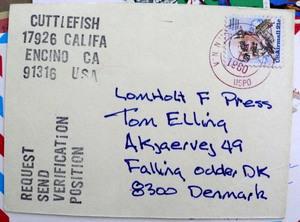 CUTTLEFISH
17926 CALIFA
ENCINO CA
91316 USA
VAN NU
1980
USPO
Lomholt F Press
Tom Elling
Akjaervej 49
Falling odder DK
8300 Denmark
REQUEST
SEND
VERIFICATION
POSITION